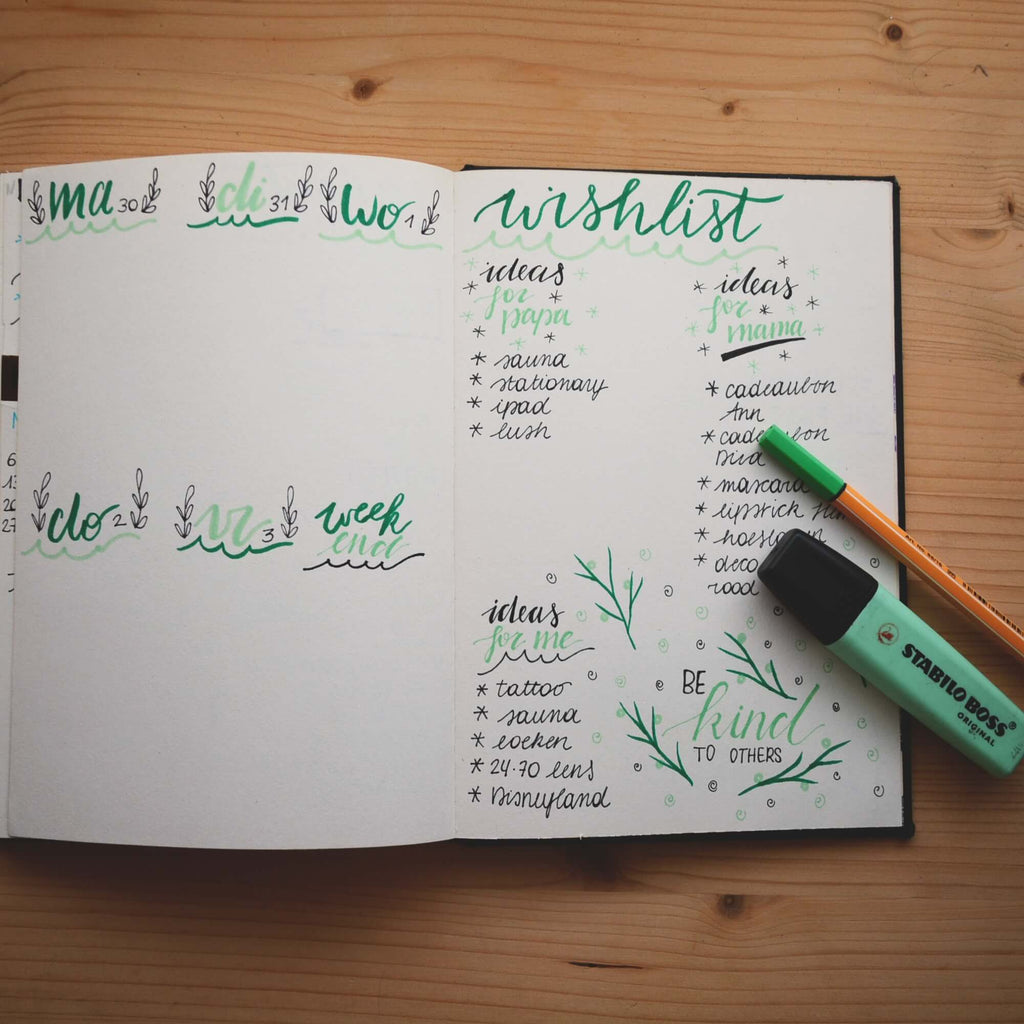 ma 30
di 31
wo 1
do 2
vr 3
week
end
wishlist
ideas
for
papa
* sauna
* stationary
* ipad
* lush
ideas
for
mama
* cadeaubon
Ann
*
* mascara
* lipstick
*
* deco
rood
ideas
for me
* tattoo
* sauna
* 24-70 lens
* Disneyland
BE
kind
TO OTHERS
STABILO BOSS®
ORIGINAL
6
13
20
27